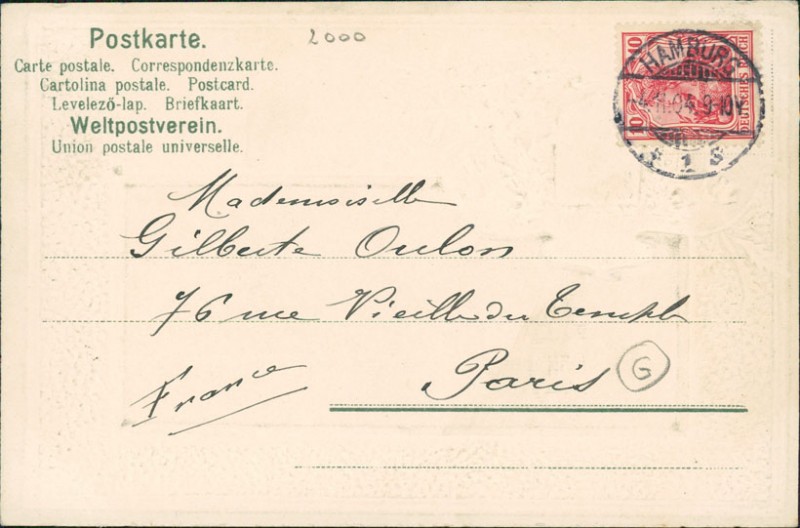 Postkarte.
2000
Carte postale. Correspondenzkarte.
Cartolina postale. Postcard.
Levelező-lap. Briefkaart.
Weltpostverein.
Union postale universelle.
10 10
DEUTSCHES REICH
HAMBURG
11.04. 9-10V
* 1 S
Mademoiselle
Gilberte Oulon
76 rue Vieille du Temple
Paris G
France